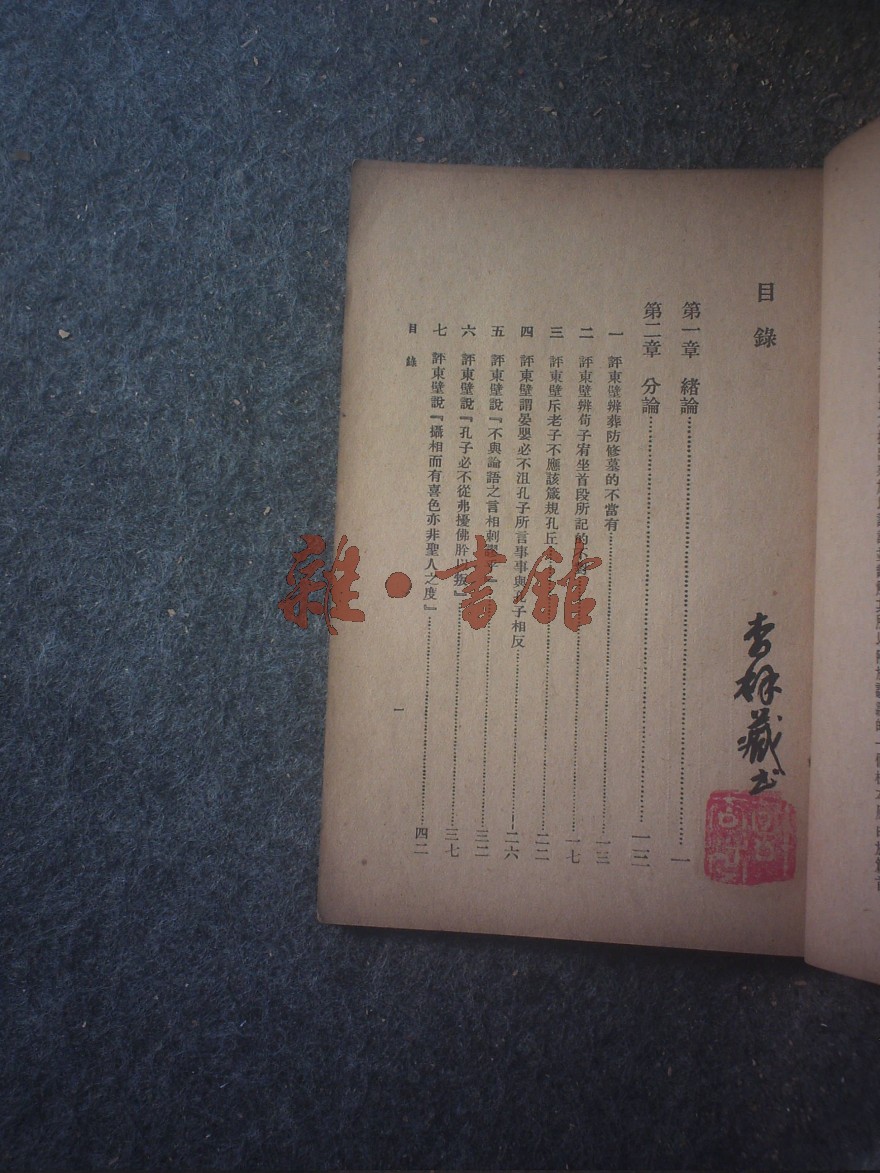 目錄
第一章 緒論……一
第二章 分論……一三
一 評東壁辨葬防修墓的不當有……一三
二 評東壁辨荀子宥坐首段所記的不……一七
三 評東壁斥老子不應該箴規孔丘……二二
四 評東壁謂晏嬰必不沮孔子所言事事與孔子相反……二六
五 評東壁說『不與論語之言相刺……三二
六 評東壁說『孔子必不從弗擾佛肸以叛』……三七
七 評東壁說『攝相而有喜色亦非聖人之度』……四二
目錄
一
藏书
雜·書館